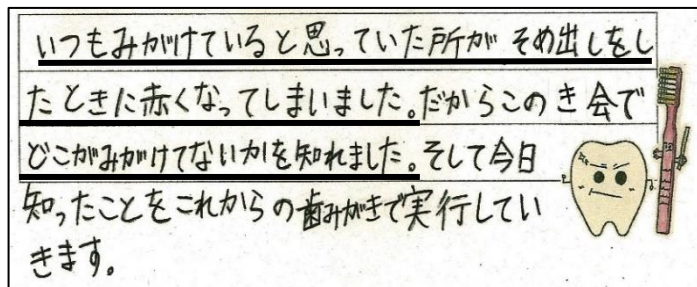 いつもみがけていると思っていた所がそめ出しをし
たときに赤くなってしまいました。だからこのき会で
どこがみがけてないかを知れました。そして今日
知ったことをこれからの歯みがきで実行してい
きます。